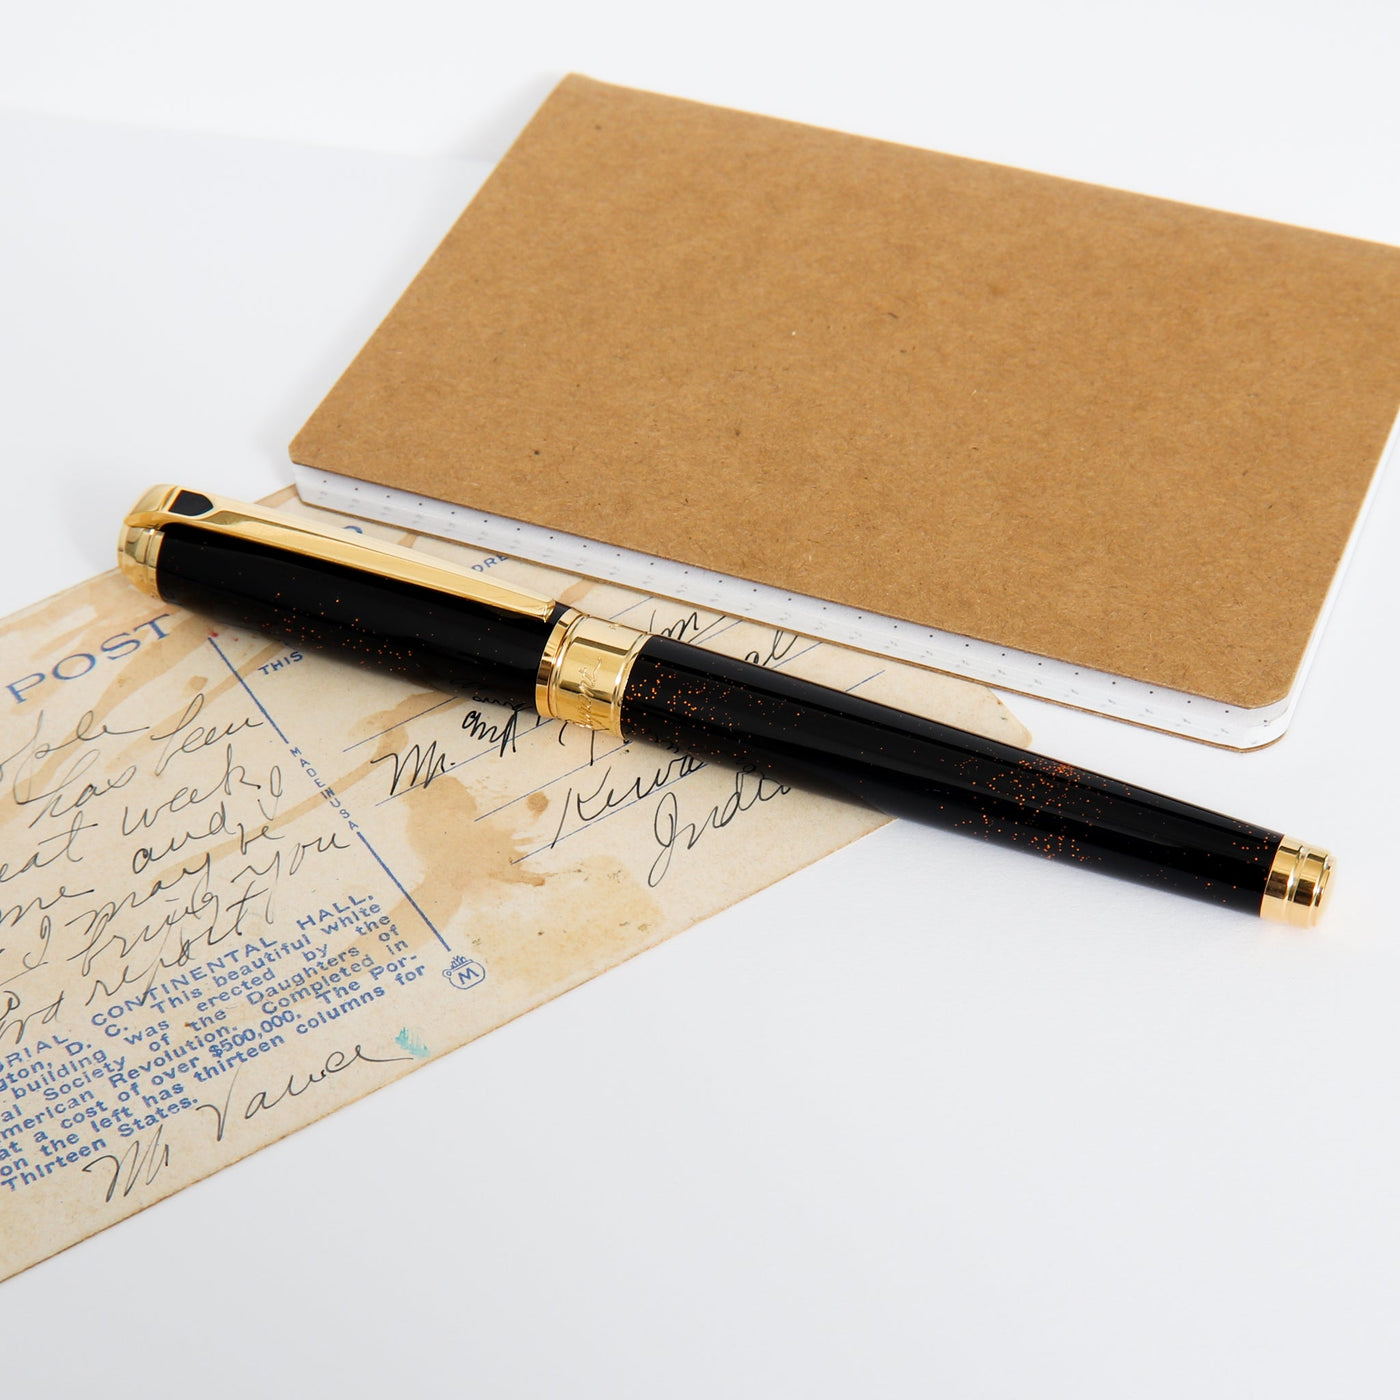 POST
THIS
has been
eat week
me and I
I may be
bring you
report
MADE IN USA
M
RIAL CONTINENTAL HALL.
gton, D. C. This beautiful white
building was erected by the
al Society of the Daughters of
merican Revolution. Completed in
at a cost of over $500,000. The Por-
on the left has thirteen columns for
Thirteen States.
M Vance
DRE
Mr. and
Kewa
Indi